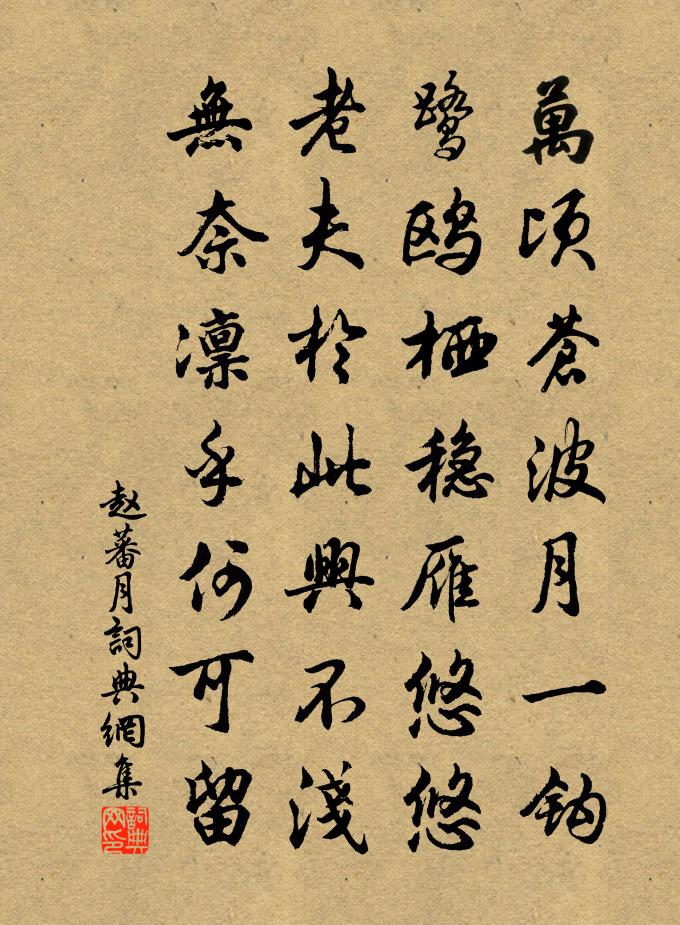 萬頃蒼波月一鈎
鷺鷗栖穏雁悠悠
老夫於此興不淺
無奈凛乎何可留
赵蕃月詞典網集
詞典网印